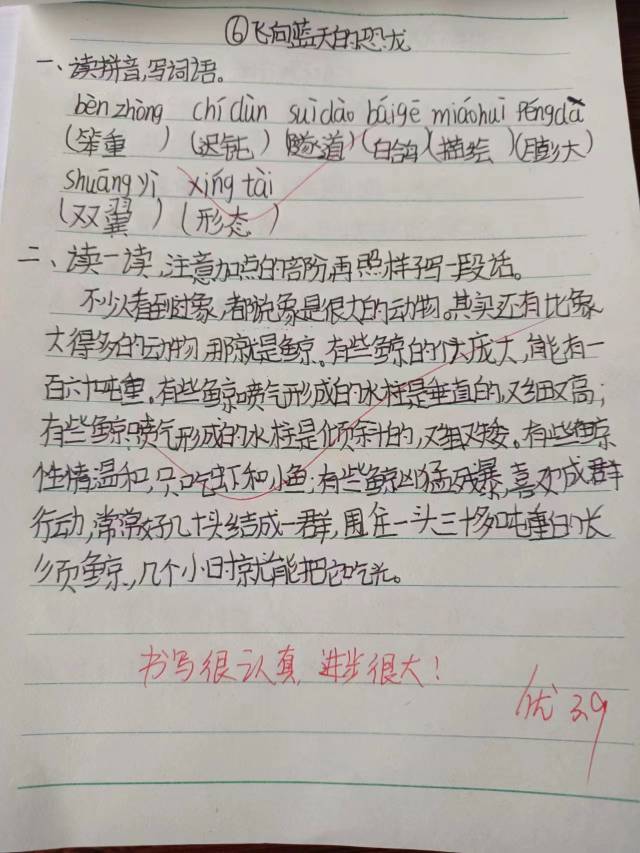 ⑥飞向蓝天的恐龙
一、读拼音,写词语。
bèn zhòng chí dùn suì dào bái gē miáo huì péng dà
(笨重)(迟钝)(隧道)(白鸽)(描绘)(膨大)
shuāng yì xíng tài
(双翼)(形态)
二、读一读,注意加点的部分,再照样子写一段话。
不少人看到过象,都说象是很大的动物。其实还有比象
大得多的动物,那就是鲸。有些鲸的体庞大,能有一
百六十吨重。有些鲸喷气形成的水柱是垂直的,又细又高;
有些鲸喷气形成的水柱是倾斜的,又粗又矮。有些鲸
性情温和,只吃虾和小鱼;有些鲸凶猛残暴,喜欢成群
行动,常常好几十头结成一群,围住一头三十多吨重的长
须鲸,几个小时就能把它吃光。
书写很认真,进步很大!
优 3.9